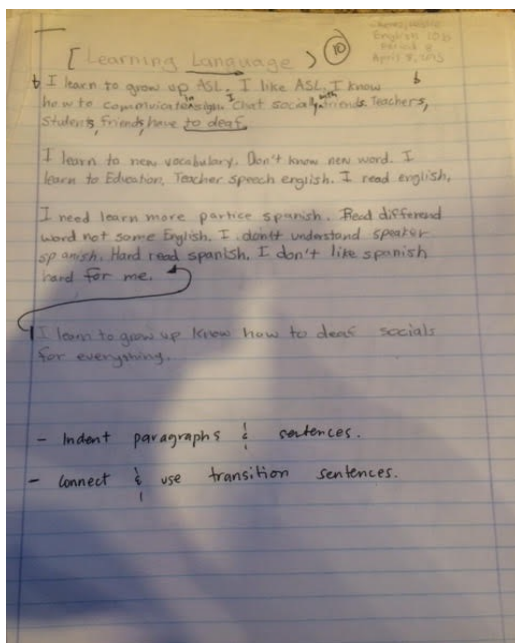 [Learning Language] 10
English 10B
Period 4
April 8, 2013
I learn to grow up ASL. I like ASL. I know
how to commnicate in sign. I chat socially with friends. Teachers,
Students, friends, have to deaf.
I learn to new vocabulary. Don't know new word. I
learn to Edication, Teacher speech english. I read english.
I need learn more partice spanish. Read differend
word not some English. I don't understand speaker
spanish. Hard read spanish. I don't like spanish
hard for me.
I learn to grow up know how to deaf socials
for everything.
- Indent paragraphs & sentences.
- Connect & use transition sentences.